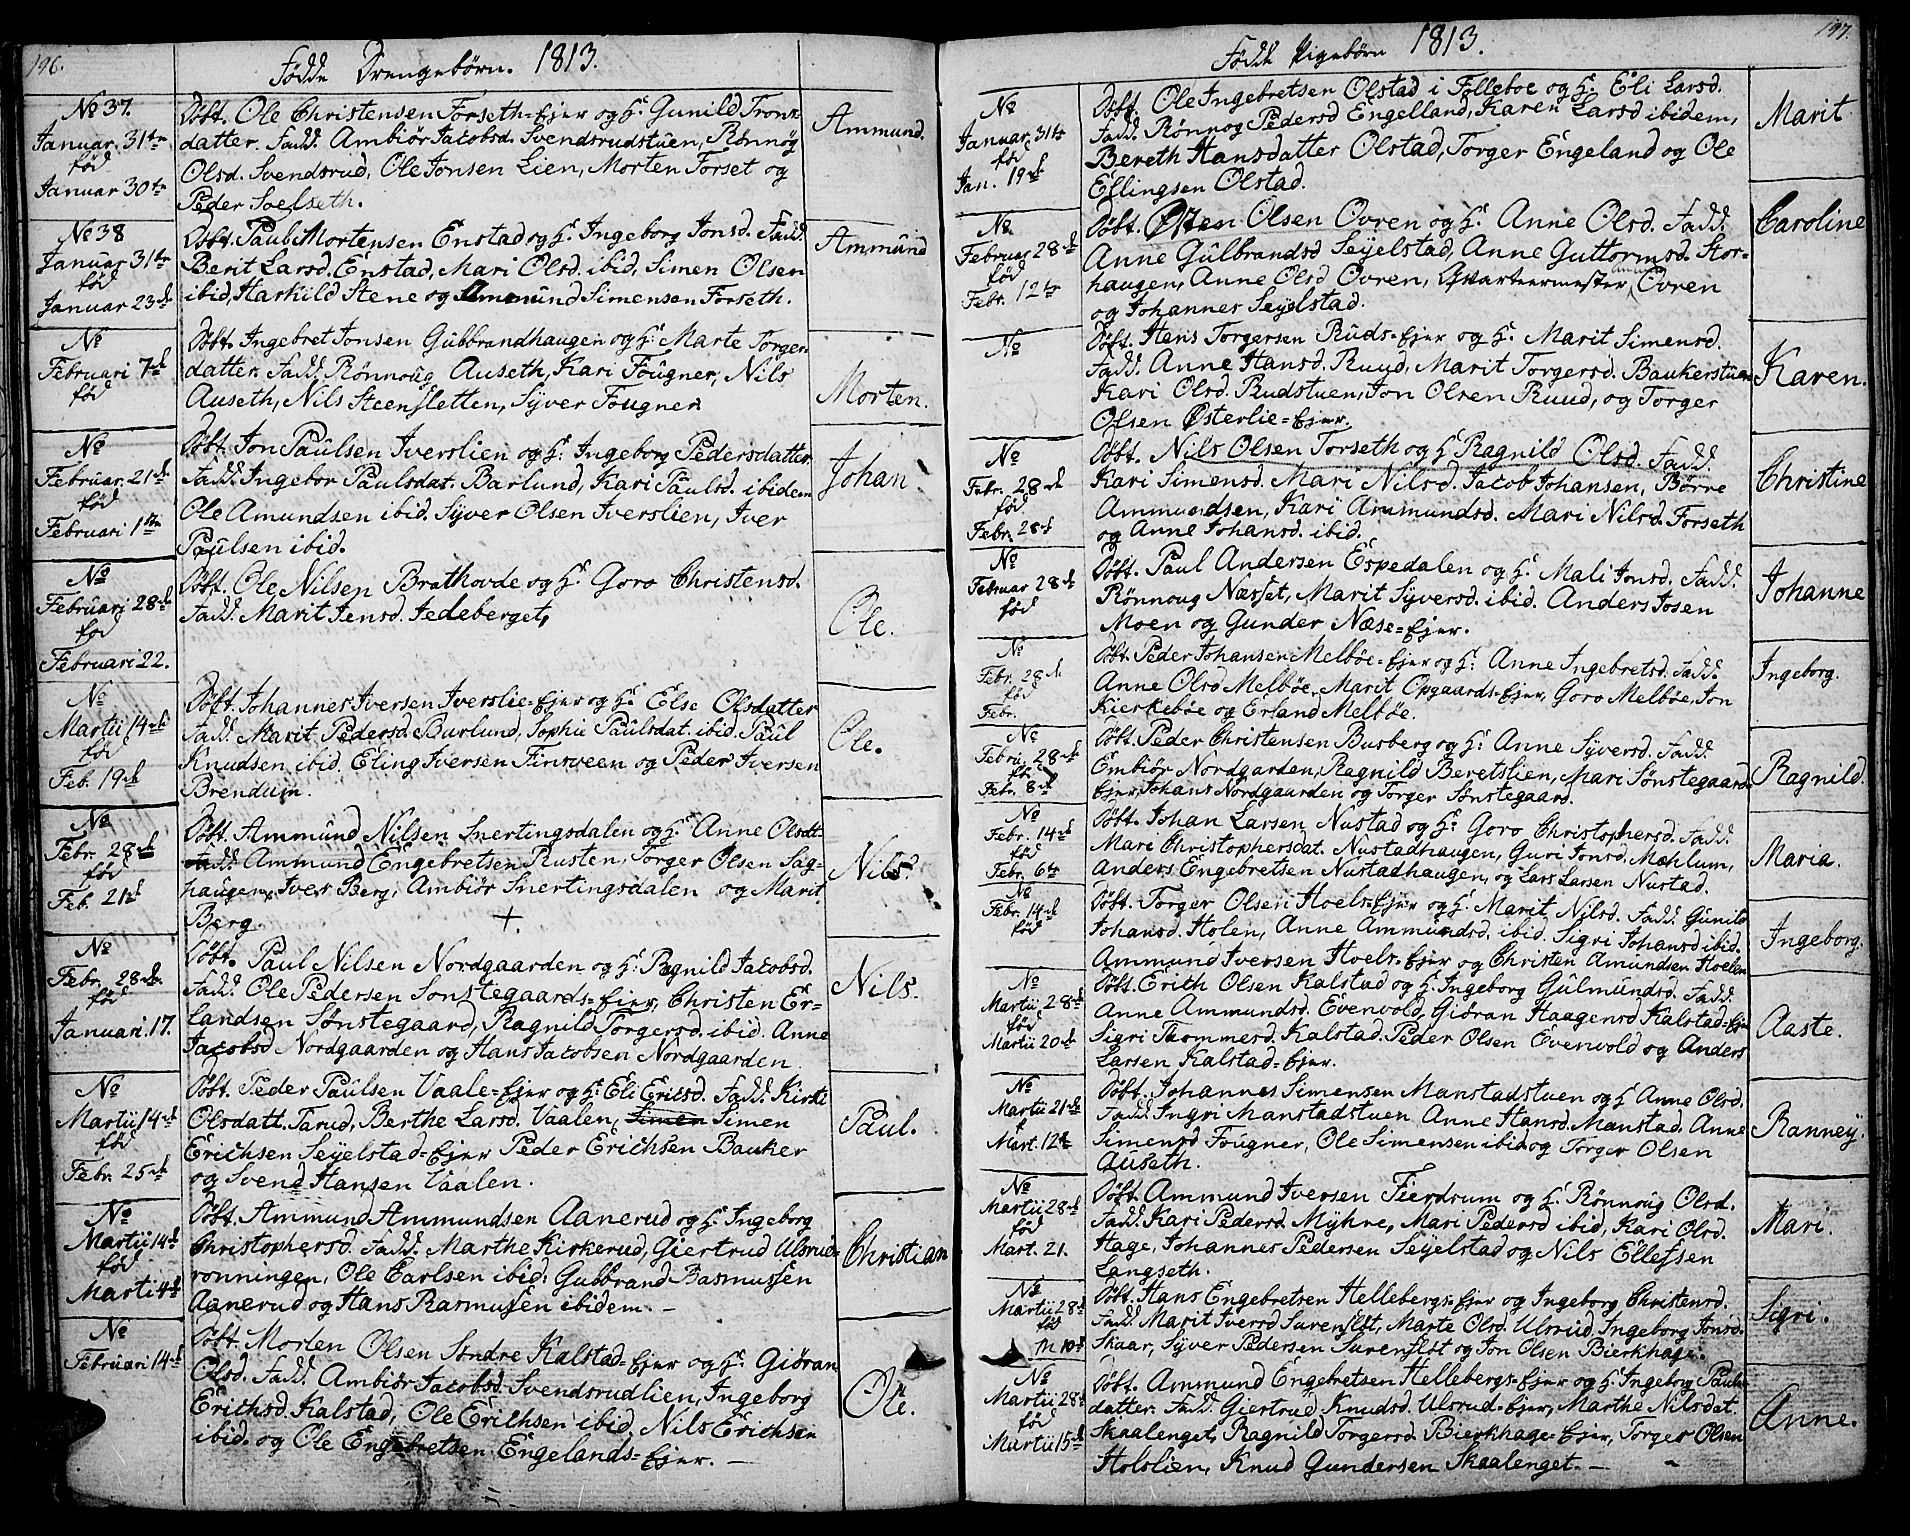 196.
Fødde Drengebørn. 1813.
No 37.
Januar. 31te
fød
Januar 30te
Døbt. Ole Christensen Forseth=Ejer og H: Gunild Trons
datter. Fadd. Ambiør Jacobsd. Svendsrudstuen, Rönnog
Olsd. Svendsrud, Ole Jonsen Lien, Morten Forset og
Peder Soelseth.
Ammund.
No 38
Januar 31te
fød
Januar 23d
Døbt. Paul Mortensen Enstad og H: Ingeborg Jonsd. Fadd.
Berit Larsd. Enstad, Mari Olsd. ibid, Simen Olsen
ibid, Harkild Stene og Amund Simensen Forseth.
Ammund
No
Februari 7d
fød
Døbt. Ingebret Jonsen Gubbrandhaugen og H: Marte Torger
datter. Fadd. Rönnoug Auseth, Kari Fougner, Nils
Auseth, Nils Steensletten, Syver Fougner
Morten.
No
Februar. 21d
fød
Februari 1te
Døbt. Jon Paulsen Iverslien og H: Ingeborg Pedersdatter
Fadd. Ingebor Paulsdat. Barlund, Kari Paulsd. ibidem
Ole Amundsen ibid. Syver Olsen Iverslien, Iver
Paulsen ibid.
Johan
No
Februari 28d
fød
Februari 22.
Døbt. Ole Nilsen Brathovde og H: Goro Christensd.
Fadd. Marit Jensd. Jedeberget,
Ole.
No
Martii 14d
fød
Feb. 19d
Døbt. Johannes Iversen Iverslie=Ejer og H: Else Olsdatter
Fadd. Marit Pedersd. Burlund, Sophie Paulsdat. ibid. Paul
Knudsen ibid. Eling Iversen Finsveen og Peder Iversen
Brendum.
Ole.
No
Febr. 28d
fød
Feb. 21d
Døbt. Ammund Nilsen Snertingsdalen og H: Anne Olsdt.
Fadd. Ammund Engebretsen Rusten, Torger Olsen Sag=
haugen, Iver Berg, Ambiör Snertingsdalen og Marit
Berg. +
Nils.
No
Febr. 28d
fød
Januari. 17.
Døbt. Paul Nilsen Nordgaarden og H: Ragnild Jacobsd.
Fadd. Ole Pedersen Sonstegaards=Ejer, Christen Er=
landsen Sønstegaard, Ragnild Torgersd. ibid. Anne
Jacobsd Nordgaarden og Hans Jacobsen Nordgaarden
Nils.
No
Martii 14d
fød
Febr. 25d
Døbt. Peder Paulsen Vaale=Ejer og H: Eli Ericsd. Fadd. Kirsti
Olsdatt. Tarud, Berthe Larsd. Vaalen, Simen Simen
Erichsen Seyelstad=Ejer Peder Erichsen Bauker
og Svend Hansen Vaalen.
Paul.
No
Martii 14d
fød
Marti 4d
Døbt. Ammund Ammundsen Aanerud og H: Ingeborg
Christophersd. Fadd. Marthe Kirkerud, Giertrud Ulsrud=
ronningen, Ole Carlsen ibid. Gubbrand Rasmussen
Aanerud og Hans Rasmussen ibidem. —
Christian
No
Februari 14d
Døbt. Morten Olsen Søndre Kalstad=Ejer og H: Giøran
Olsd. Fadd. Ambiør Jacobsd. Svendsrudlien, Ingeborg
Erichsd. Kalstad, Ole Erichsen ibid, Nils Erichsen
ibid. og Ole Engebretsen Engelands=Ejer. —
Ole.
197.
Fødde Pigebørn 1813.
No
Januar. 31te
fød
Jan. 19d
Døbt. Ole Ingebretsen Olstad i Folleboe og H: Eli Larsd.
Fadd. Rönnog Pedersd Engelland, Karen Larsd ibidem,
Bereth Hansdatter Olstad, Torger Engeland og Ole
Ellingsen Olstad.
Marit
No.
Februar 28d
fød
Febr. 12te
Døbt. Østen Olsen Ovren og H: Anne Olsd. Fadd.
Anne Gulbrandsd Seyelstad, Anne Guttormsd. Stor=
haugen, Anne Olsd Ovren, Qvarteermester Ovren
og Johannes Seyelstad.
Caroline
No
Døbt. Hans Torgersen Ruds=Ejer og H: Marit Simensd.
Fadd. Anne Hansd. Ruud, Marit Torgersd. Baukerstuen
Kari Olsd. Rudstuen, Jon Olsen Ruud, og Torger
Olsen Østerlie=Ejer.
Karen.
No
Febr. 28d
fød
Febr. 28d
Døbt. Nils Olsen Forseth og H: Ragnild Olsd. Fadd.
Kari Simensd. Mari Nilsd. Jacob Johansen, Börre
Ammundsen, Kari Ammundsd. Mari Nilsd. Forseth
og Anne Johansd. ibid.
Christine
No
Februar 28d
fød
Døbt. Paul Andersen Espedalen og H: Mali Jonsd. Fadd.
Rönnoug Næsset, Marit Syversd. ibid. Anders Josen
Moen og Gunder Næse=Ejer.
Johanne
No
Febr. 28d
fød
Febr.
Døbt. Peder Johansen Melbøe=Ejer og H: Anne Ingebretsd. Fadd.
Anne Olsd Melbøe, Marit Opgaards=Ejer, Goro Melbøe, Jon
Kierkebøe og Erland Melbøe.
Ingeborg.
No
Febri. 28d
fød
Febr. 8d
Døbt. Peder Christensen Busberg og H: Anne Syversd. Fadd.
Embiør Nordgarden, Ragnild Beretslien, Mari Sønstegaards
Ejer, Johans Nordgaarden og Torger Sønstegaard.
Ragnild.
No
Febr. 14d
fød
Febr. 6te
Døbt. Johan Larsen Nustad og H: Goro Christophersd. Fadd.
Mari Christophersdat. Nustadhaugen, Guri Jonsd. Mæhlum,
Anders Engebretsen Nustadhaugen, og Lars Larsen Nustad.
Maria.
No
Febr. 14d
fød
Døbt. Torger Olsen Hoels=Ejer og H: Marit Nilsd. Fadd Gunild
Johansd. Holen, Anne Ammundsd. ibid. Sigri Johansd ibid.
Ammund Iversen Hoels=Ejer og Christen Amundsen Hoelen
Ingeborg.
No
Martii 28d
fød
Martii 20d
Døbt. Erich Olsen Kalstad og H: Ingeborg Gulmundsd. Fadd.
Anne Ammundsd. Evenvold, Giøran Haagensd Kalstad=Ejer
Sigri Thommesd. Kalstad. Peder Olsen Evenvold og Anders
Larsen Kalstad=Ejer.
Aaste.
No
Martii 21d
f
Mart. 12te
Døbt. Johannes Simensen Manstadstuen og H: Anne Olsd.
Fadd. Ingri Manstadstuen, Anne Hansd. Manstad, Anne
Simensd Fougner, Ole Simensen ibid. og Torger Olsen
Auseth.
Ranney.
No
Martii 28d
fød
Mart. 21.
Døbt. Ammund Iversen Fierdrum og H: Rönnoug Olsd.
Fadd. Kari Pedersd. Myhre, Mari Pedersd ibid, Kari Olsd.
Hage, Johannes Pedersen Seyelstad og Nils Ellefsen
Langseth.
Mari.
No
Martii 28d
fød
M 10d
Døbt. Hans Engebretsen Hellebergs=Ejer og Ingeborg Christensd.
Fadd. Marit Iversd Surenflöt, Marte Olsd. Ulsrud, Ingeborg Jonsd.
Skaar, Syver Pedersen Surenflöt og Jon Olsen Bierkhage.
Sigri.
No
Martii 28d
fød
Martii 15d
Døbt. Ammund Engebretsen Hellebergs=Ejer og H: Ingeborg Pauls=
datter. Fadd. Giertrud Knudsd. Ulsrud=Ejer, Marthe Nilsdat.
Skaalenget, Ragnild Torgersd. Bierkhage=Ejer, Torger Olsen
Holslien, Knud Gundersen Skaalenget. —
Anne.